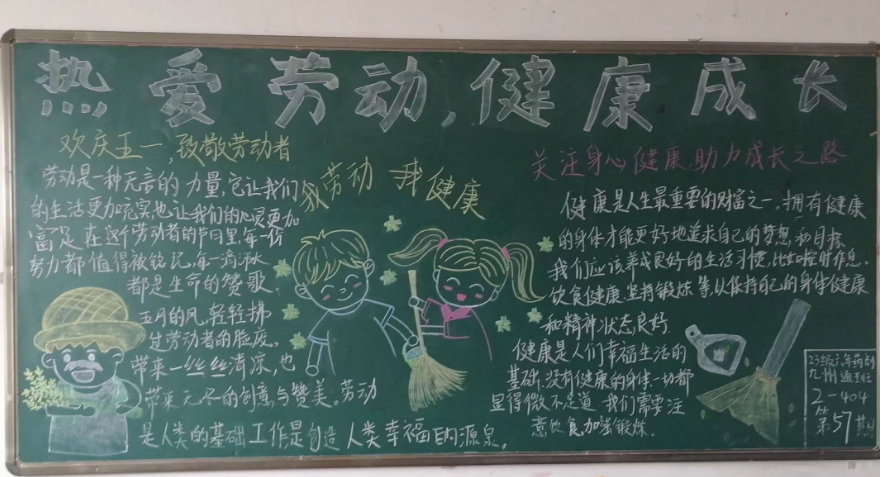 热爱劳动,健康成长
欢庆五一,致敬劳动者
劳动是一种无言的力量,它让我们
的生活更加充实,也让我们的心灵更加
富足,在这个劳动者的节日里,每一份
努力都值得被铭记,每一滴汗水
都是生命的赞歌
五月的风,轻轻拂
过劳动者的脸庞,
带来一丝丝清凉,也
带来无尽的创意与赞美。劳动
是人类的基础 工作是创造人类幸福的源泉。
我劳动 我健康
关注身心健康 助力成长之路
健康是人生最重要的财富之一,拥有健康
的身体才能更好地追求自己的梦想和目标
我们应该养成良好的生活习惯,比如按时作息,
饮食健康,坚持锻炼等,以保持自己的身体健康
和精神状态良好
健康是人们幸福生活的
基础,没有健康的身体一切都
显得微不足道,我们需要注
意饮食,加强锻炼.
23级
九州
2-404
第57期